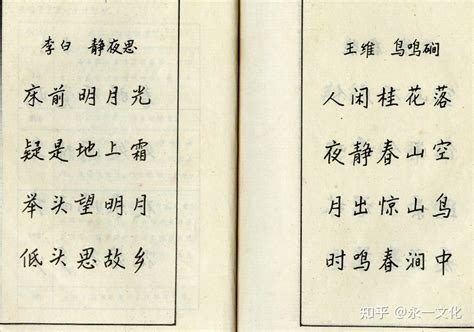 李白 静夜思
床前明月光
疑是地上霜
举头望明月
低头思故乡
王维 鸟鸣磵
人闲桂花落
夜静春山空
月出惊山鸟
时鸣春涧中
知乎 @永一文化